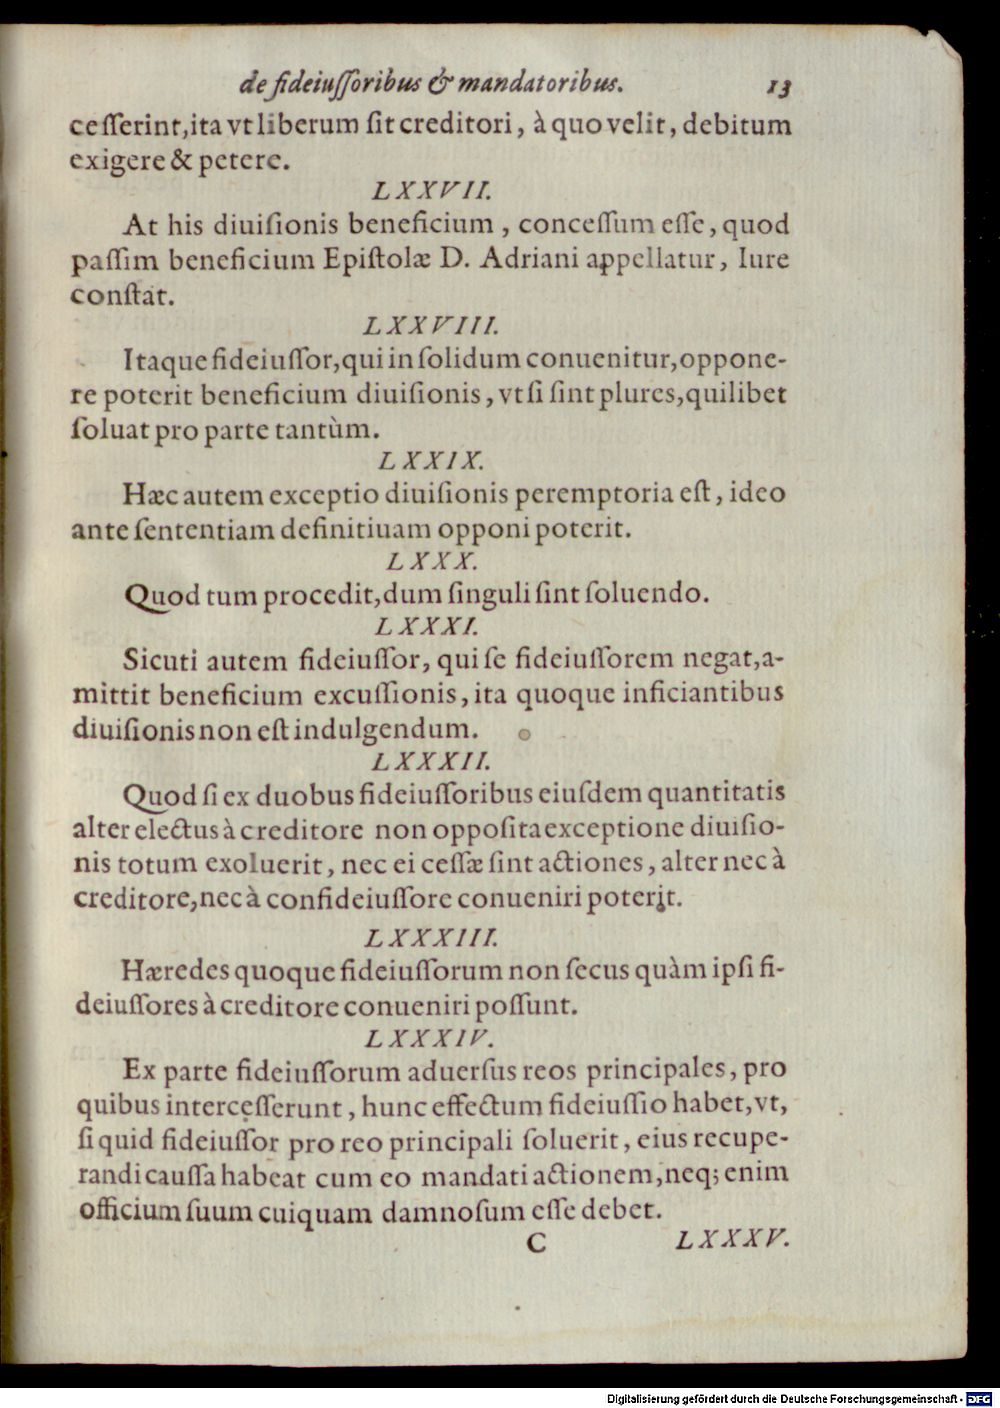 de fideiuſſoribus & mandatoribus. 13
ceſſerint,ita vt liberum ſit creditori, à quo velit, debitum
exigere & petere.
LXXVII.
At his diuiſionis beneficium, conceſſum eſſe, quod
paſſim beneficium Epiſtolæ D. Adriani appellatur, Iure
conſtat.
LXXVIII.
Itaque fideiuſſor,qui in ſolidum conuenitur,oppone-
re poterit beneficium diuiſionis, vt ſi ſint plures,quilibet
ſoluat pro parte tantùm.
LXXIX.
Hæc autem exceptio diuiſionis peremptoria eſt, ideo
ante ſententiam definitiuam opponi poterit.
LXXX.
Quod tum procedit,dum ſinguli ſint ſoluendo.
LXXXI.
Sicuti autem fideiuſſor, qui ſe fideiuſſorem negat,a-
mittit beneficium excuſſionis, ita quoque inficiantibus
diuiſionis non eſt indulgendum.
LXXXII.
Quod ſi ex duobus fideiuſſoribus eiuſdem quantitatis
alter electus à creditore non oppoſita exceptione diuiſio-
nis totum exoluerit, nec ei ceſſæ ſint actiones, alter nec à
creditore,nec à confideiuſſore conueniri poterit.
LXXXIII.
Hæredes quoque fideiuſſorum non ſecus quàm ipſi fi-
deiuſſores à creditore conueniri poſſunt.
LXXXIV.
Ex parte fideiuſſorum aduerſus reos principales, pro
quibus interceſſerunt, hunc effectum fideiuſſio habet,vt,
ſi quid fideiuſſor pro reo principali ſoluerit, eius recupe-
randi cauſſa habeat cum eo mandati actionem,neq; enim
officium ſuum cuiquam damnoſum eſſe debet.
C LXXXV.
Digitalisierung gefördert durch die Deutsche Forschungsgemeinschaft - DFG